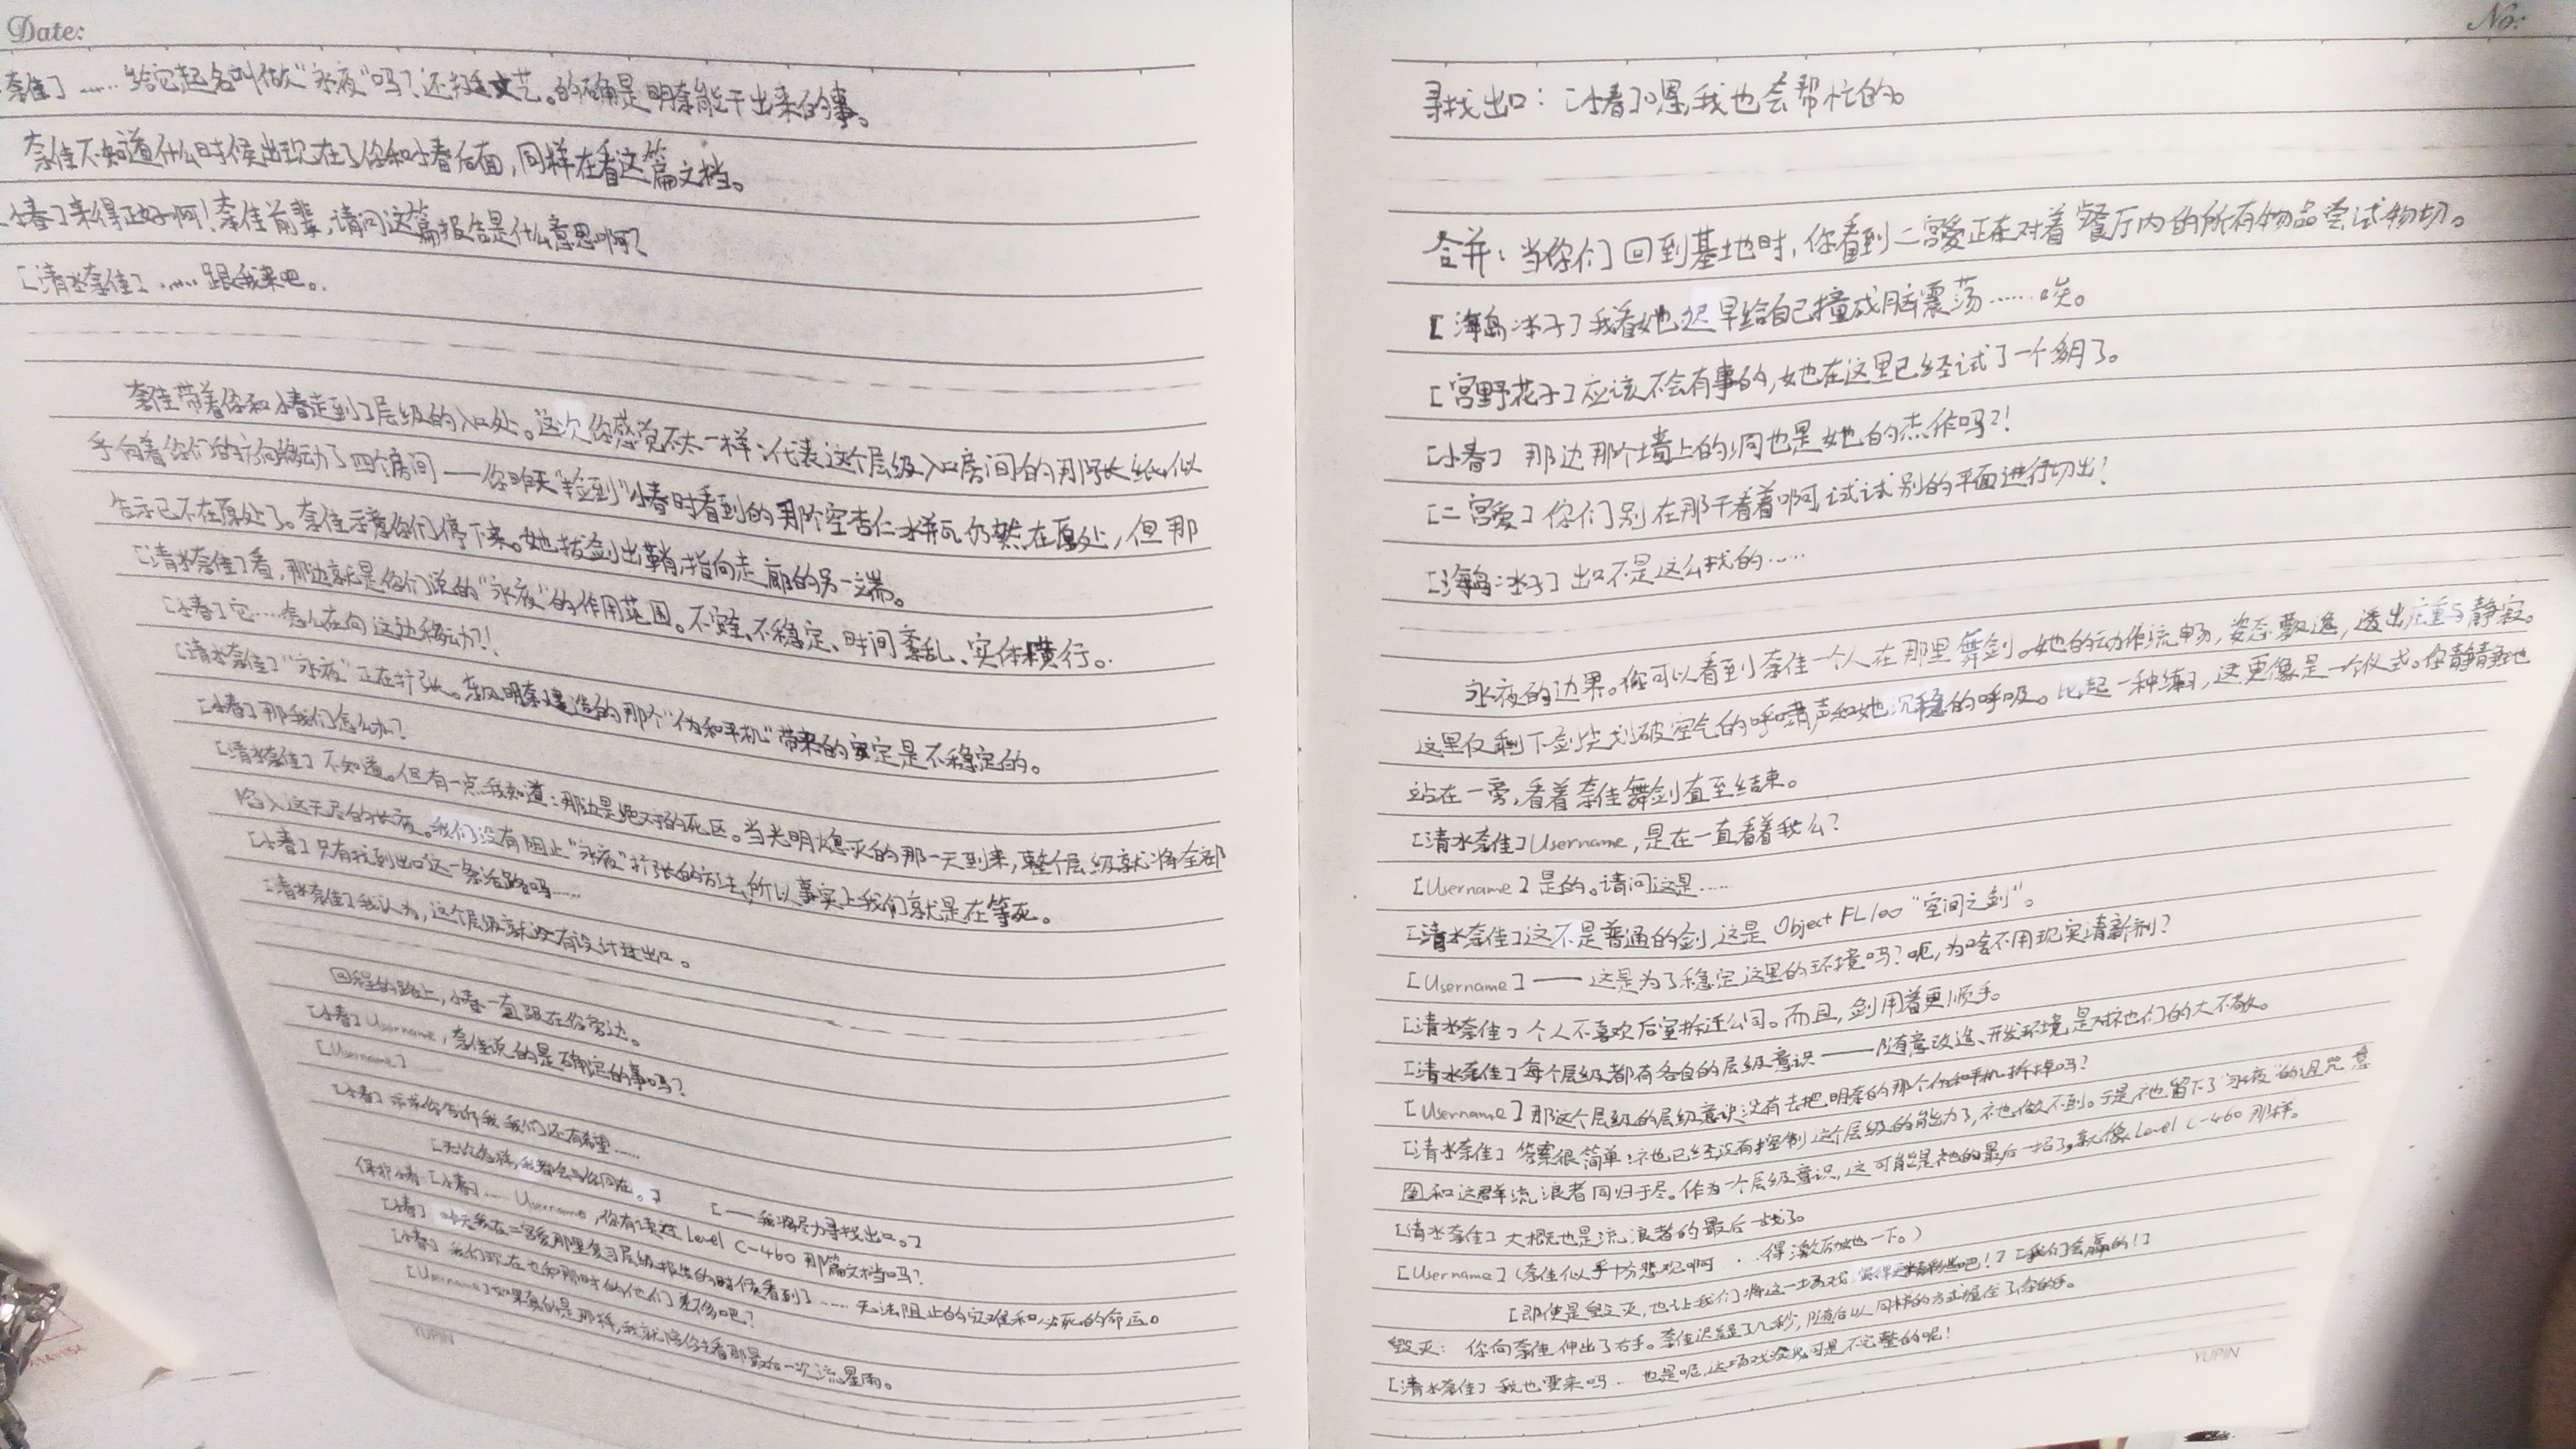 Date:
奈佳］……给它起名叫做“永夜”吗？还挺文艺。的确是明奈能干出来的事。
奈佳不知道什么时候出现在了你和小春后面，同样在看这篇文档。
小春］来得正好啊！奈佳前辈，请问这篇报告是什么意思啊？
［清水奈佳］……跟我来吧。
奈佳带着你和小春走到了层级的入口处。这次你感觉不太一样：代表这个层级入口房间的那张纸似
乎向着你们的方向移动了四个房间——你昨天“捡到”小春时看到的那个空杏仁水瓶仍然在原处，但那
告示已不在原处了。奈佳示意你们停下来。她拔剑出鞘，指向走廊的另一端。
［清水奈佳］看，那边就是你们说的“永夜”的作用范围。不安全、不稳定、时间紊乱、实体横行。
［小春］它……怎么在向这边移动？！
［清水奈佳］“永夜”正在扩张。东风明奈建造的那个“伪和平机”带来的安定是不稳定的。
［小春］那我们怎么办？
［清水奈佳］不知道。但有一点我知道：那边是绝对的死区。当光明熄灭的那一天到来，整个层级就将全部
陷入这无尽的长夜。我们没有阻止“永夜”扩张的方法，所以事实上我们就是在等死。
［小春］只有找到出口这一条活路吗……
［清水奈佳］我认为，这个层级就没有设计过出口。
回程的路上，小春一直跟在你旁边。
［小春］Username，奈佳说的是确定的事吗？
［Username］
［小春］求求你告诉我我们还有希望……
［无论怎样，我都会与你同在。］ ［——我将尽力寻找出口。］
保护小春［小春］……Username，你有读过Level C-460那篇文档吗？
［小春］昨天我在二宫爱那里复习层级报告的时候看到了……无法阻止的灾难和必死的命运。
［小春］我们现在也和那时的他们差不多吧？
［Username］如果真的是那样，我就陪你去看那最后一次流星雨。
YUPIN
No:
寻找出口：［小春］嗯，我也会帮忙的。
合并：当你们回到基地时，你看到二宫爱正在对着餐厅内的所有物品尝试物切。
［海鸟冰子］我看她迟早给自己撞成脑震荡……唉。
［宫野花子］应该不会有事的，她在这里已经试了一个多月了。
［小春］那边那个墙上的洞也是她的杰作吗？！
［二宫爱］你们别在那干看着啊，试试别的平面进行切出！
［海鸟冰子］出口不是这么找的……
永夜的边界。你可以看到奈佳一个人在那里舞剑。她的动作流畅，姿态飘逸，透出庄重与静寂。
这里仅剩下剑尖划破空气的呼啸声和她沉稳的呼吸。比起一种练习，这更像是一个仪式。你静静地
站在一旁，看着奈佳舞剑直至结束。
［清水奈佳］Username，是在一直看着我么？
［Username］是的。请问这是……
［清水奈佳］这不是普通的剑，这是Object FL100“空间之剑”。
［Username］——这是为了稳定这里的环境吗？呃，为啥不用现实清新剂？
［清水奈佳］个人不喜欢后室拆迁公司。而且，剑用着更顺手。
［清水奈佳］每个层级都有各自的层级意识——随意改造、开发环境是对祂们的大不敬。
［Username］那这个层级的层级意识没有去把明奈的那个伪和平机拆掉吗？
［清水奈佳］答案很简单：祂已经没有控制这个层级的能力了，祂做不到。于是祂留下了“永夜”的诅咒，意
图和这群流浪者同归于尽。作为一个层级意识，这可能是祂的最后一招了，就像Level C-460那样。
［清水奈佳］大概也是流浪者的最后一战了。
［Username］（奈佳似乎十分悲观啊……得激励她一下。）
［即使是毁灭，也让我们将这一场戏演得更精彩些吧！］［我们会赢的！］
毁灭：你向奈佳伸出了右手。奈佳迟疑了几秒，随后以同样的方式握住了你的手。
［清水奈佳］我也要来吗……也是呢，这场戏没我可是不完整的呢！
YUPIN